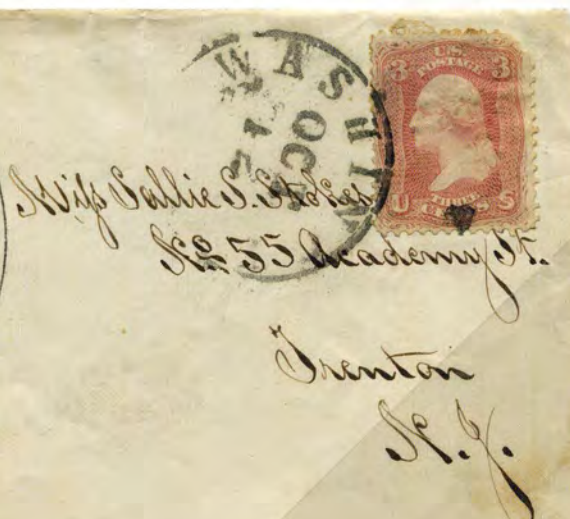 WASHIN
OCT
17
3 U.S. 3
POSTAGE
U THREE S
CENTS
Miss Sallie S. Stokes
No 55 Academy St.
Trenton
N. J.